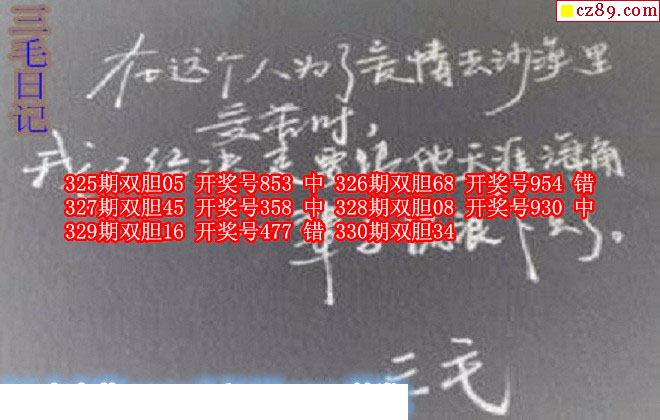 cz89.com
三毛日记
在这个人为了爱情去沙漠里
受苦时,
我已经决定要跟他天涯海角
一辈子流浪下去了。
325期双胆05 开奖号853 中 326期双胆68 开奖号954 错
327期双胆45 开奖号358 中 328期双胆08 开奖号930 中
329期双胆16 开奖号477 错 330期双胆34
三毛